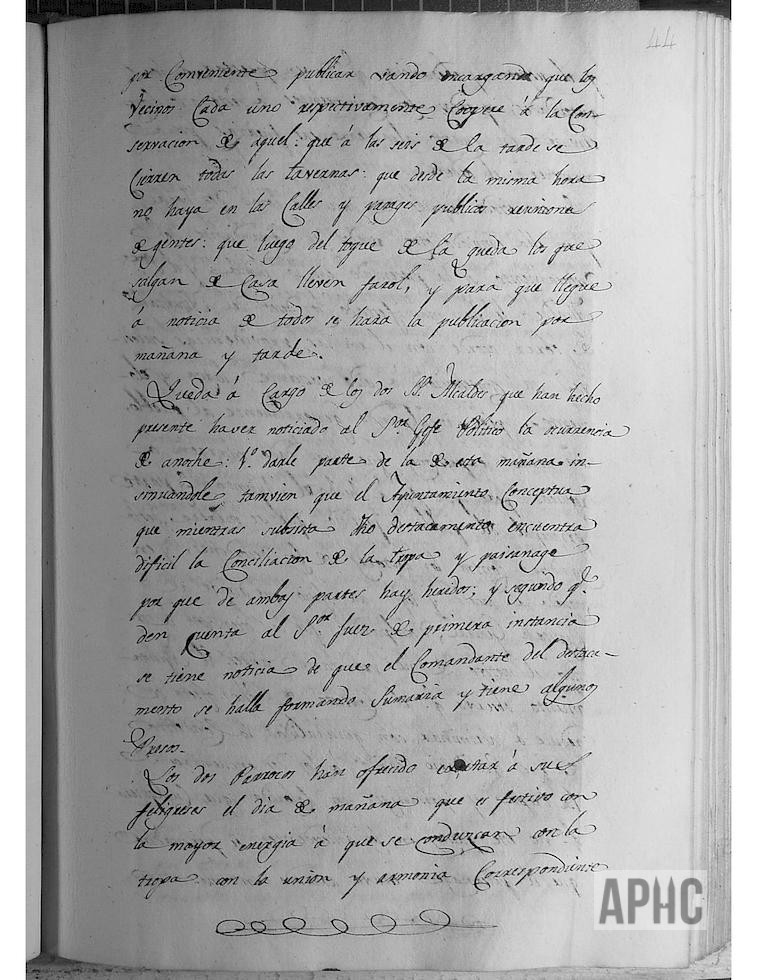 44
por Combeniente publicar vando encargando que los
Vecinos Cada uno respectivamente Coopere á la Con-
servacion de aquel: que á las seis de la tarde se
Cierren todas las tavernas: que desde la misma hora
no haya en las Calles y parages publicos reuniones
de gentes: que luego del toque de la queda los que
salgan de Casa lleven farol, y para que llegue
á noticia de todos se hara la publicacion por
mañana y tarde.
Queda á Cargo de los dos SS. Alcaldes que han hecho
presente haver noticiado al Sor. Gefe Politico la ocurrencia
de anoche: 1º. darle parte de la de esta mañana in-
sinuandole tamvien que el Ayuntamiento Conceptua
que mientras subsista dho destacamento encuentra
dificil la Conciliacion de la tropa y paisanage
por que de ambas partes hay heridos; y segundo q.
den Cuenta al Sor. Juez de primera instancia
se tiene noticia de que el Comandante del destaca-
mento se halla formando Sumaria y tiene algunos
Presos.
Los dos Parrocos han ofrecido exortar á sus
feligreses el dia de mañana que es festivo con
la mayor energia á que se conduzcan con la
tropa con la union y armonia Correspondiente
APHC